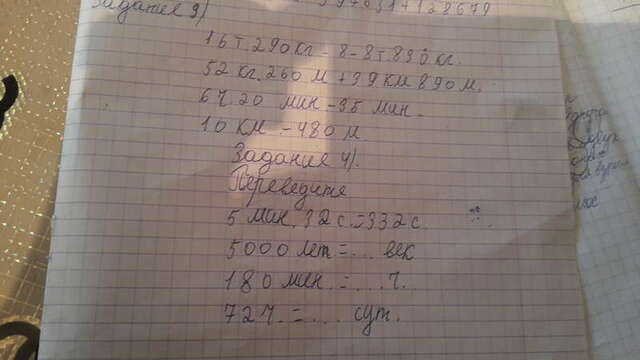 Задание 3)
16т 290кг - 8 - 8т 830кг.
52км 260 м + 39км 890м.
6ч 20 мин - 35 мин.
10 км - 480 м
Задание 4.
Переведите
5 мин. 12 с. = 332с
5000 лет = ... век
180 мин = .... ч.
72ч. = .... сут.